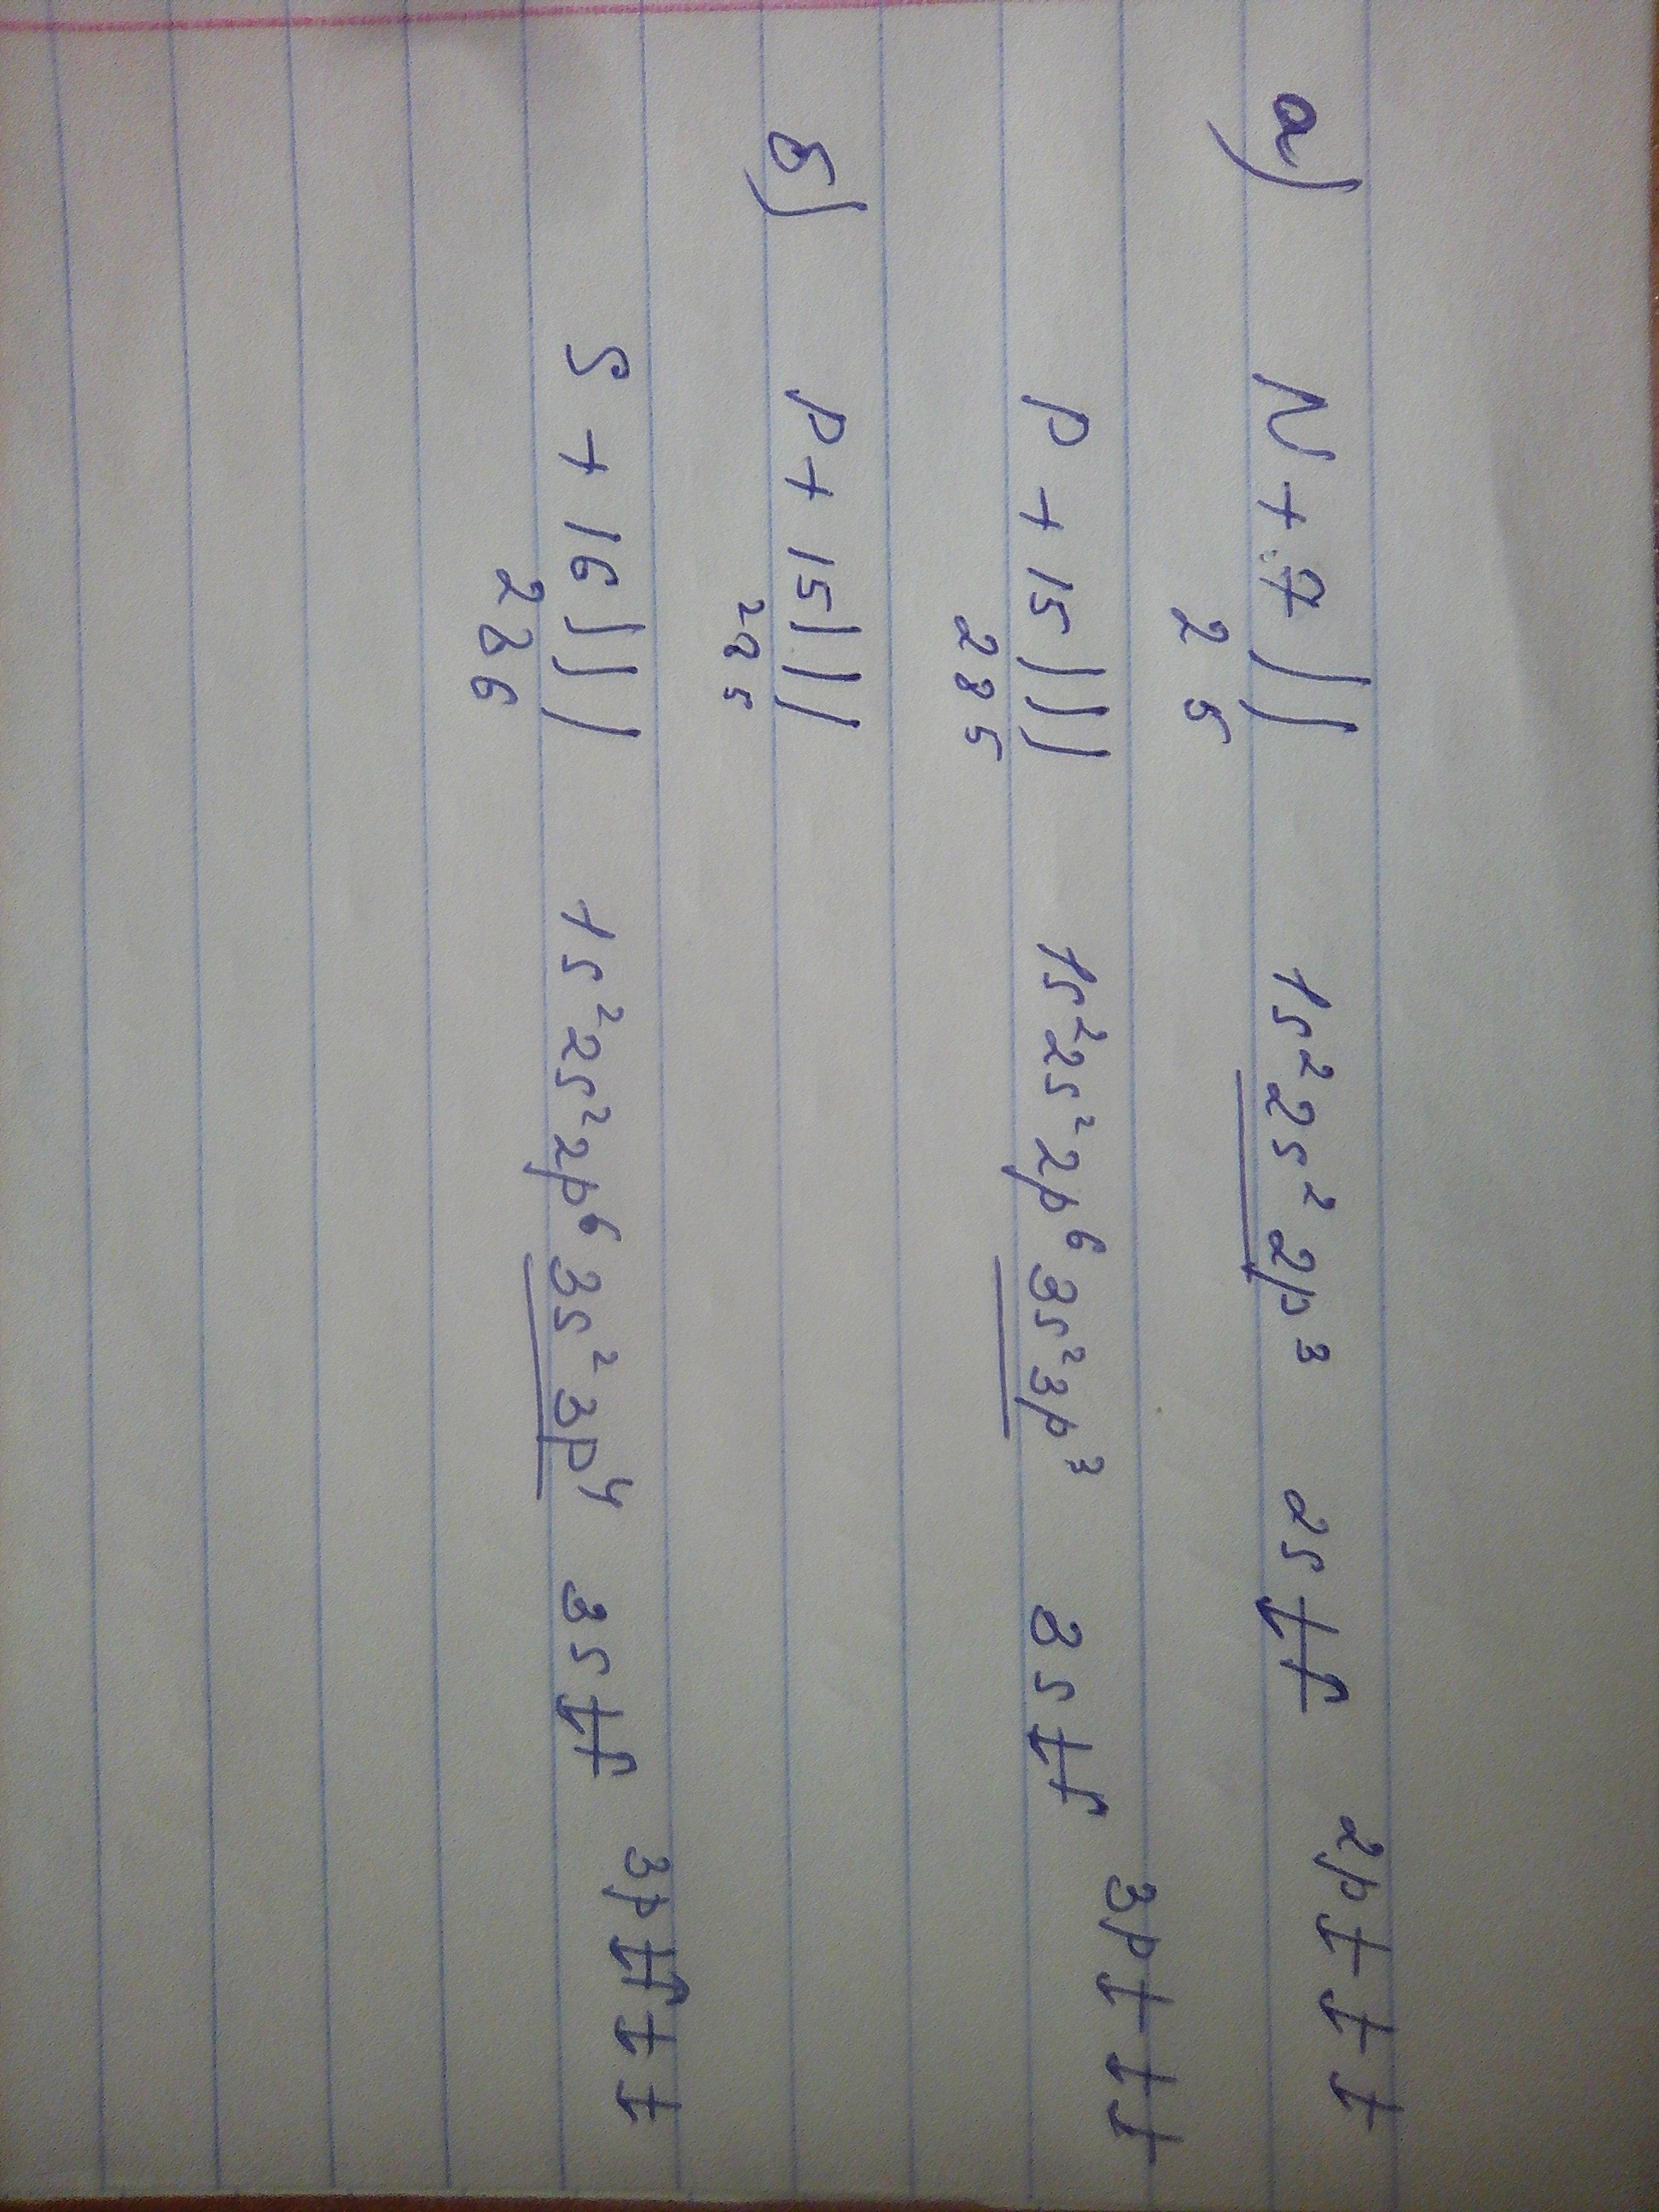 а) N + 7 ) ) 1s² 2s² 2p³ 2s ↑↓ 2p ↑ ↑ ↑
2 5
P + 15 ) ) ) 1s² 2s² 2p⁶ 3s² 3p³ 3s ↑↓ 3p ↑ ↑ ↑
2 8 5
б) P + 15 ) ) )
2 8 5
S + 16 ) ) ) 1s² 2s² 2p⁶ 3s² 3p⁴ 3s ↑↓ 3p ↑↓ ↑ ↑
2 8 6